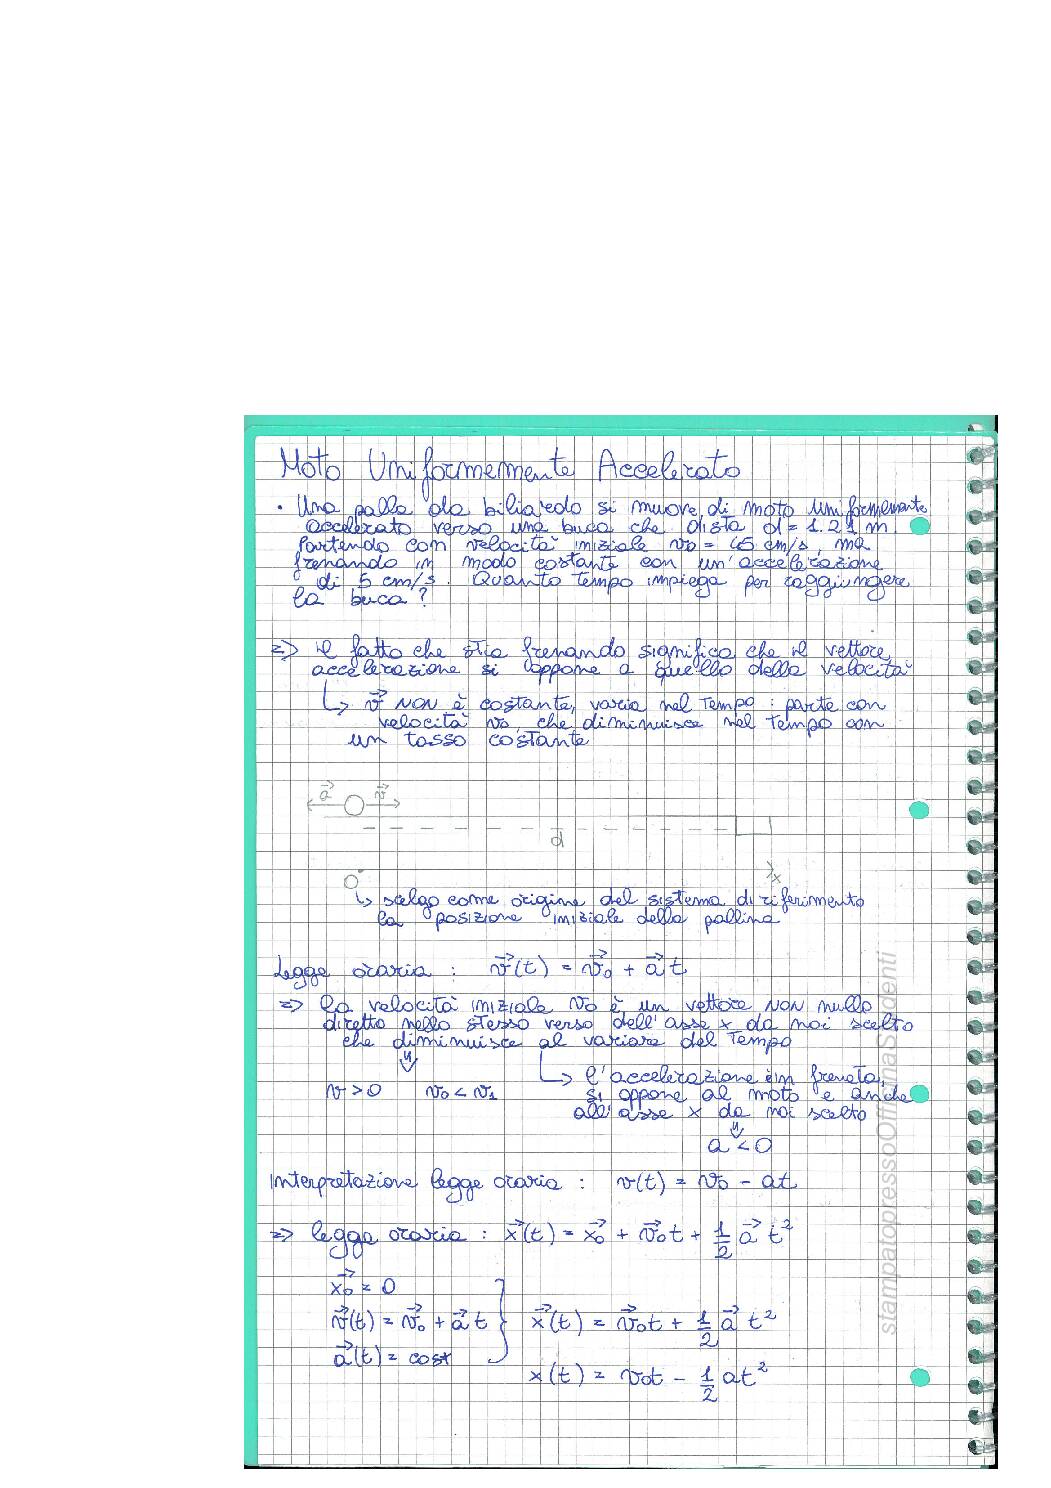 Moto Uniformemente Accelerato
• Una palla da biliardo si muove di moto uniformemente
accelerato verso una buca che dista d = 1.21 m.
Partendo con velocità iniziale v0 = 45 cm/s, ma
frenando in modo costante con un'accelerazione
di 5 cm/s. Quanto tempo impiega per raggiungere
la buca?
=> il fatto che stia frenando significa che il vettore
accelerazione si oppone a quello della velocità
↳ v⃗ NON è costante, varia nel tempo: parte con
velocità v0, che diminuisce nel tempo con
un tasso costante
a⃗ v⃗
d
O x
↳ scelgo come origine del sistema di riferimento
la posizione iniziale della pallina
Legge oraria : v⃗(t) = v⃗0 + a⃗ t
=> la velocità iniziale v0 è un vettore NON nullo
diretto nello stesso verso dell'asse x da noi scelto
che diminuisce al variare del tempo
↳ l'accelerazione è in frenata,
v > 0 v0 < v1 si oppone al moto e anche
all'asse x da noi scelto
a < 0
Interpretazione legge oraria : v(t) = v0 - at
=> legge oraria : x⃗(t) = x⃗0 + v⃗0t + 1/2 a⃗ t²
x⃗0 = 0
v⃗(t) = v⃗0 + a⃗ t } x⃗(t) = v⃗0t + 1/2 a⃗ t²
a⃗(t) = cost
x(t) = v0t - 1/2 at²
stampatopressoOfficinaStudenti